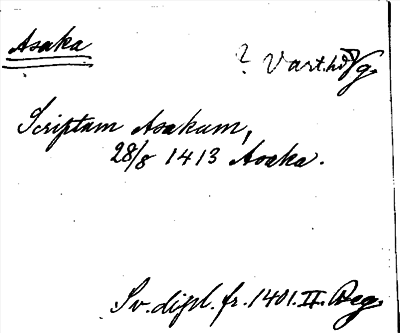 Asaka
? Vartofta hd Vg
Scriptam Asakum,
28/8 1413 Asaka.
Sv. dipl. fr. 1401. II. Reg.